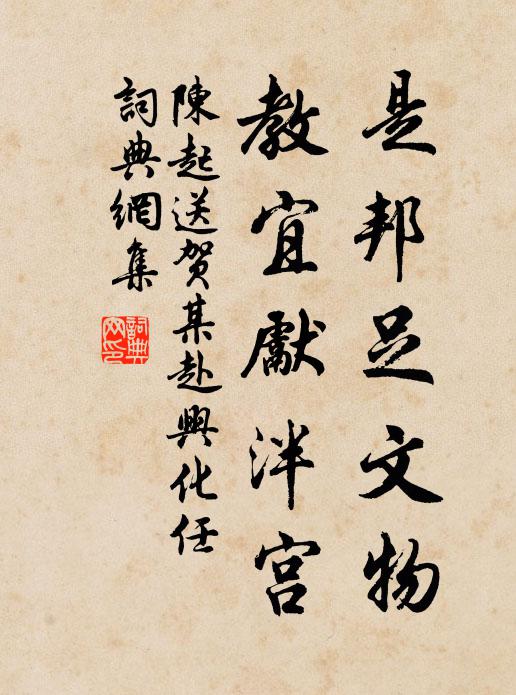 是邦足文物
教宜獻泮宮
陳起送贺某赴興化任
詞典網集
詞典网印